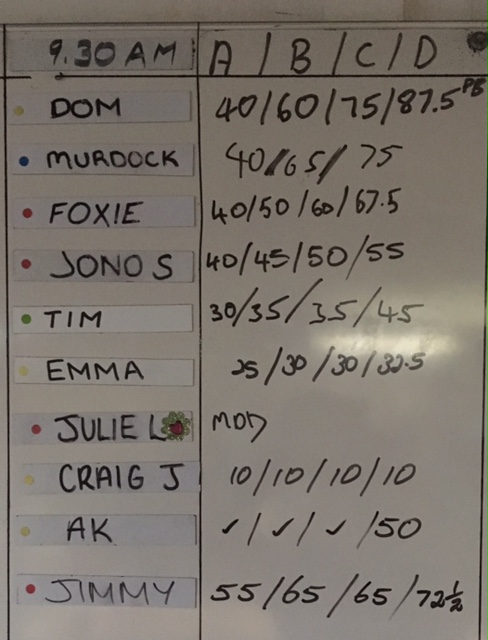 9.30 AM A / B / C / D
DOM 40/60/75/87.5 PB
MURDOCK 40/65/75
FOXIE 40/50/60/67.5
JONO S 40/45/50/55
TIM 30/35/35/45
EMMA 25/30/30/32.5
JULIE L MOD
CRAIG J 10/10/10/10
AK ✓/✓/✓/50
JIMMY 55/65/65/72½